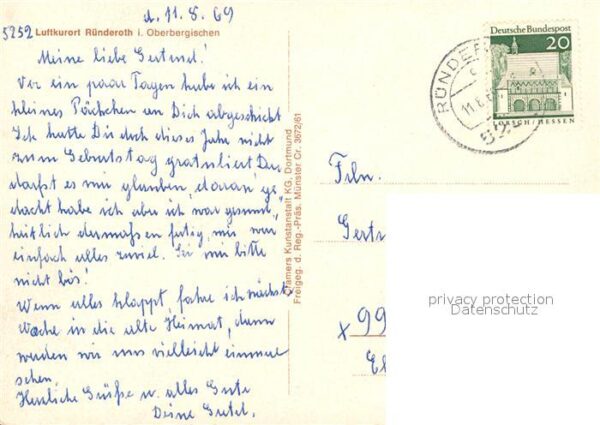 d. 11.8.69
5252 Luftkurort Ründeroth i. Oberbergischen
Meine liebe Gertrud!
Vor ein paar Tagen habe ich ein
kleines Päckchen an Dich abgeschickt
Ich hatte Dir doch dieses Jahr nicht
zum Geburtstag gratuliert Du
darfst es mir glauben, daran ge
dacht habe ich aber ich war gesund,
heitlich dermaßen fertig, mir war
einfach alles zuviel. Sei mir bitte
nicht bös!
Wenn alles klappt, fahre ich nächste
Woche in die alte Heimat, dann
werden wir uns vielleicht einmal
sehen.
Herzliche Grüße u. alles Gute
Deine
Cramers Kunstanstalt KG, Dortmund
Freigeg. d. Reg.-Präs. Münster Cr. 3672/61
Deutsche Bundespost
20
LORSCH/HESSEN
RÜNDER
11.8.
52
Frln.
Gertr
x 99
privacy protection
Datenschutz